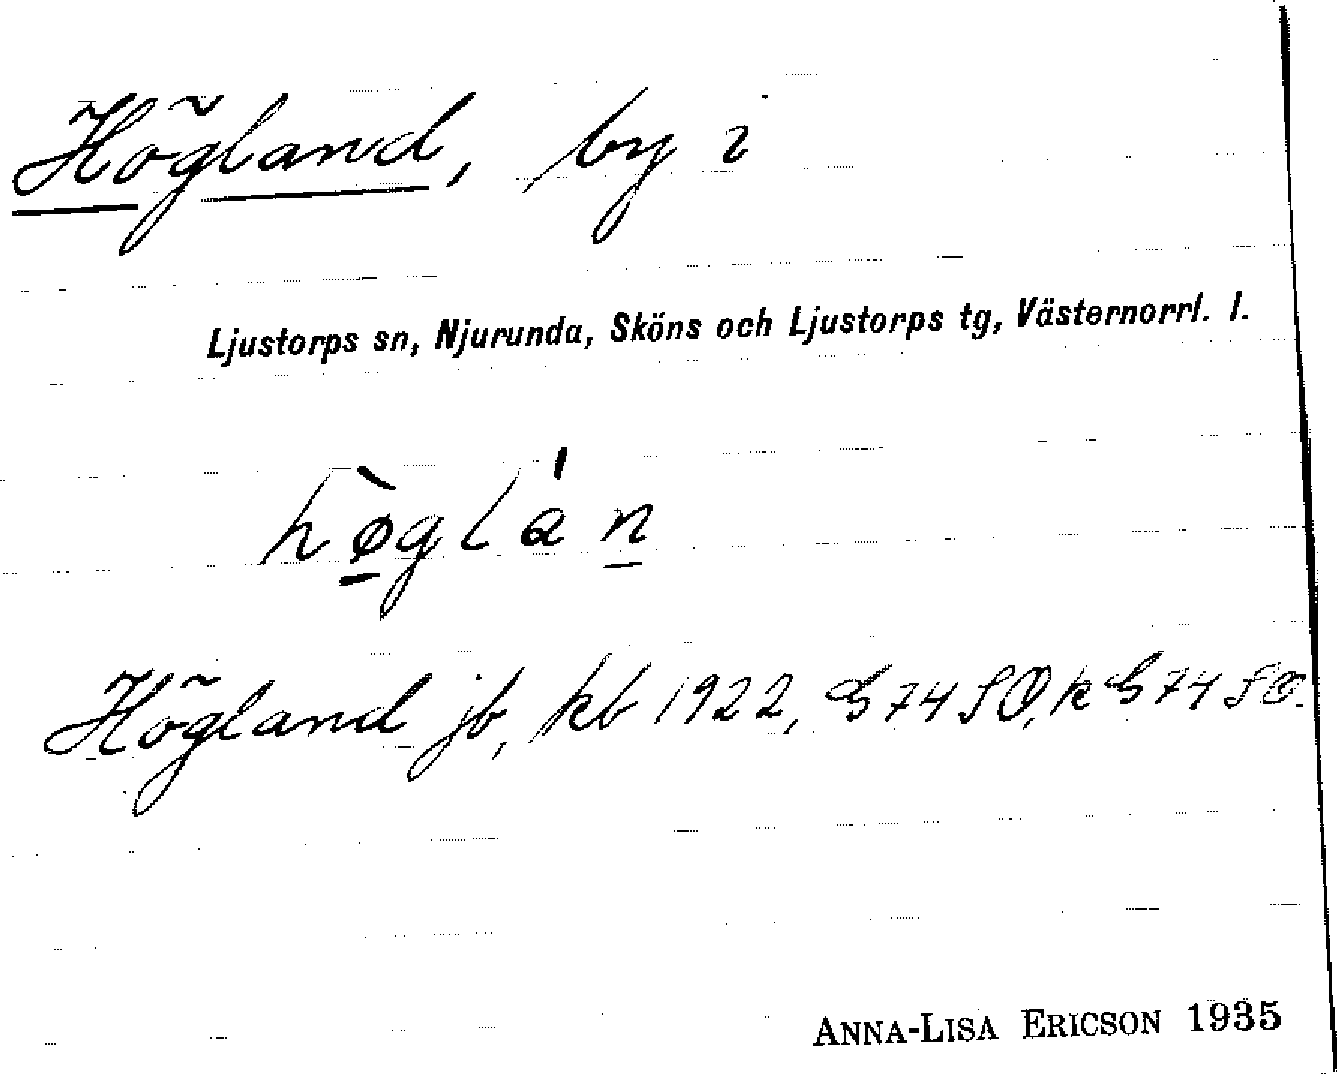 Högland, by i
Ljustorps sn, Njurunda, Sköns och Ljustorps tg, Västernorrl. l.
hø̠̀glán̠
Högland jb, kb 1922, G 74 SO, k G 74 SO.
ANNA-LISA ERICSON 1935